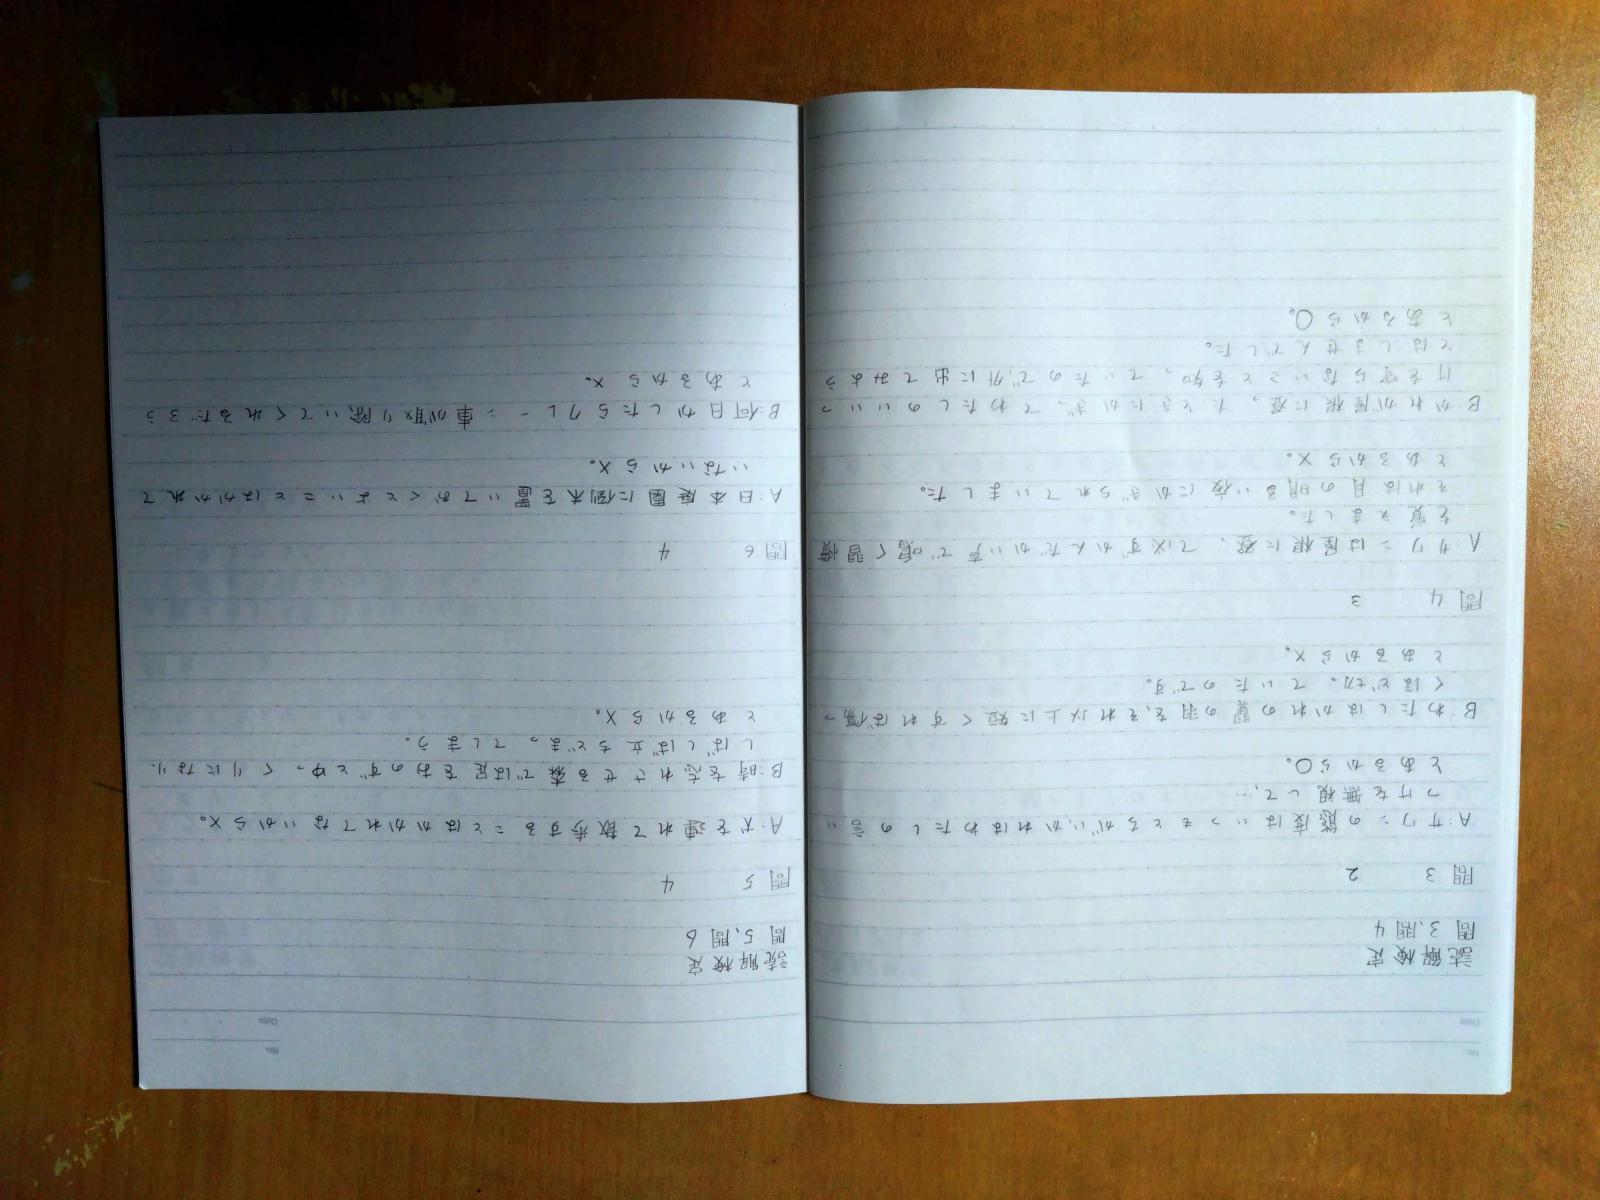 No.
Date
読解検定
問3,問4
問3 2
A:サワンの態度はいつもとちがい、かれはわたしの言い
つけを無視して、…
とあるから○。
B:わたしはかれの翼の羽を、それ以上に短くすれば傷つ
くほど切っていたのです。
とあるから×。
問4 3
A:サワンは屋根に登って必ずかんだかい声で鳴く習慣
を覚えました。
それは月の明るい夜にかぎられていました。
とあるから×。
B:かれが屋根に登ったときにかぎって、わたしのいいつ
けを守らないことを知っていたので、外に出てみよう
とはしませんでした。
とあるから○。
No.
Date
読解検定
問5,問6
問5 4
A:犬を連れて散歩することはかかれてないから×。
B:時を忘れさせる森では足をおのずとゆっくりになり、
しばしば立ちどまってしまう。
とあるから×。
問6 4
A:日本庭園に倒木を置いておくとよいことはかかれて
いないから×。
B:何日かしたらクレーン車が取り除いてくれるだろう
とあるから×。